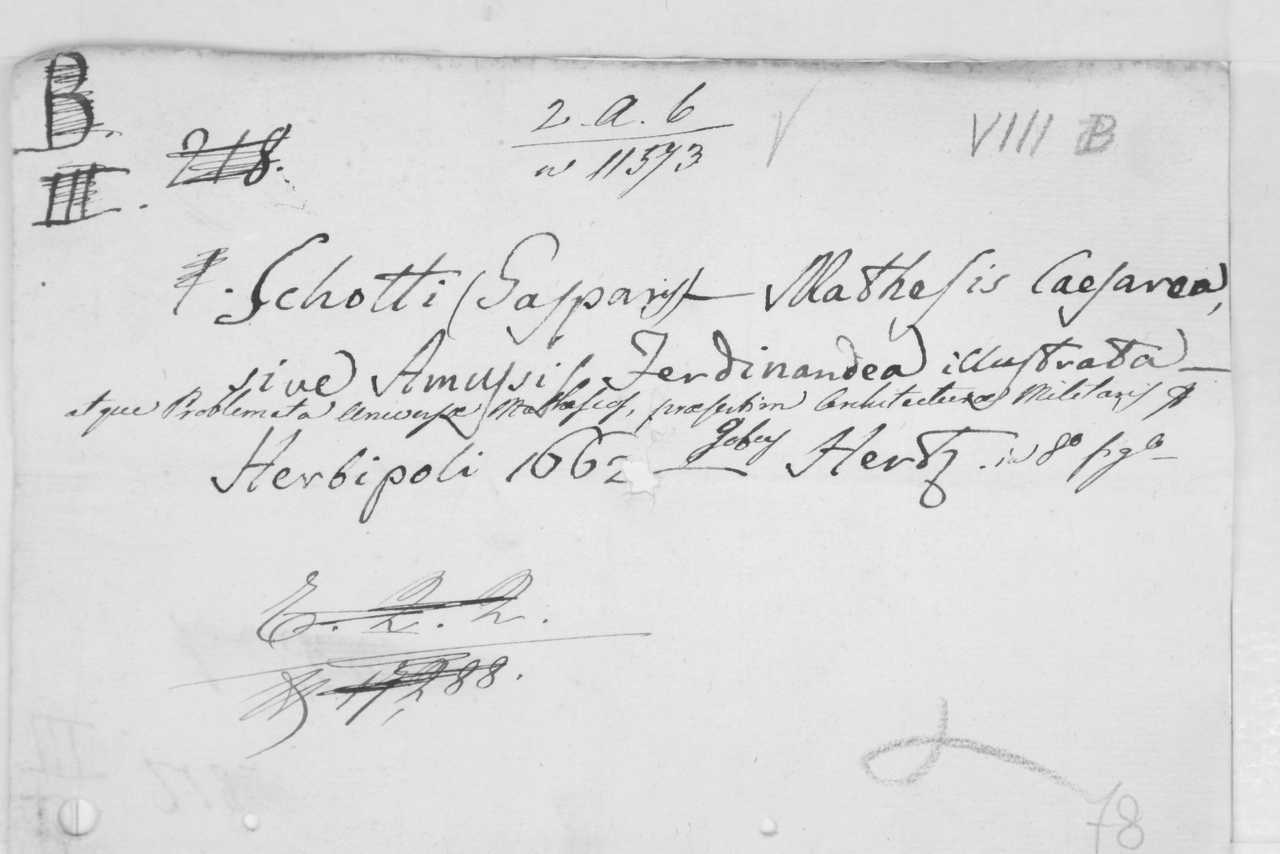 B.
III.
218.
2. a. 6
n 11573
VIIII B
Schotti (Gasparis) — Mathesis Caesarea,
sive Amussis Ferdinandea illustrata —
atque Problemata Universae Mathaeseos, praesertim Architecturae Militaris &
Herbipoli 1662 — Jobus Hertz . in 8° fig^a
E. 2. 2.
N 17,288.
78